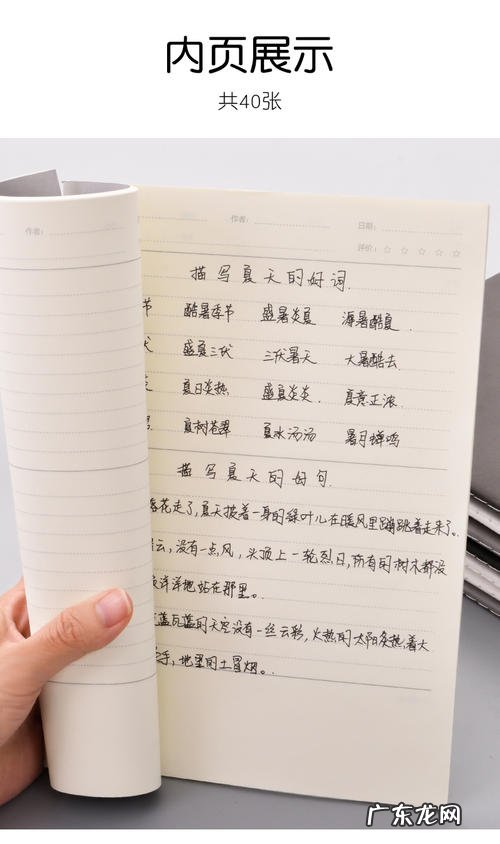 内页展示
共40张
作者:
作者:
日期:
评价: ☆ ☆ ☆ ☆ ☆
描写夏天的好词.
节 酷暑季节 盛暑炎夏 溽暑酷夏.
盛夏三伏 三伏暑天 大暑酷去
夏日炎热 盛夏炎炎. 夏意正浓.
夏树苍翠 夏水汤汤 暑月蝉鸣
描写夏天的好句.
落花走了,夏天披着一身的绿叶儿在暖风里蹦跳着走来了。
云,没有一点风,头顶上一轮烈日,所有的树木都没
洋洋地站在那里。
瓦蓝瓦蓝的天空没有一丝云彩,火热的太阳炙热着大
手,地里的土冒烟。
广东龙网